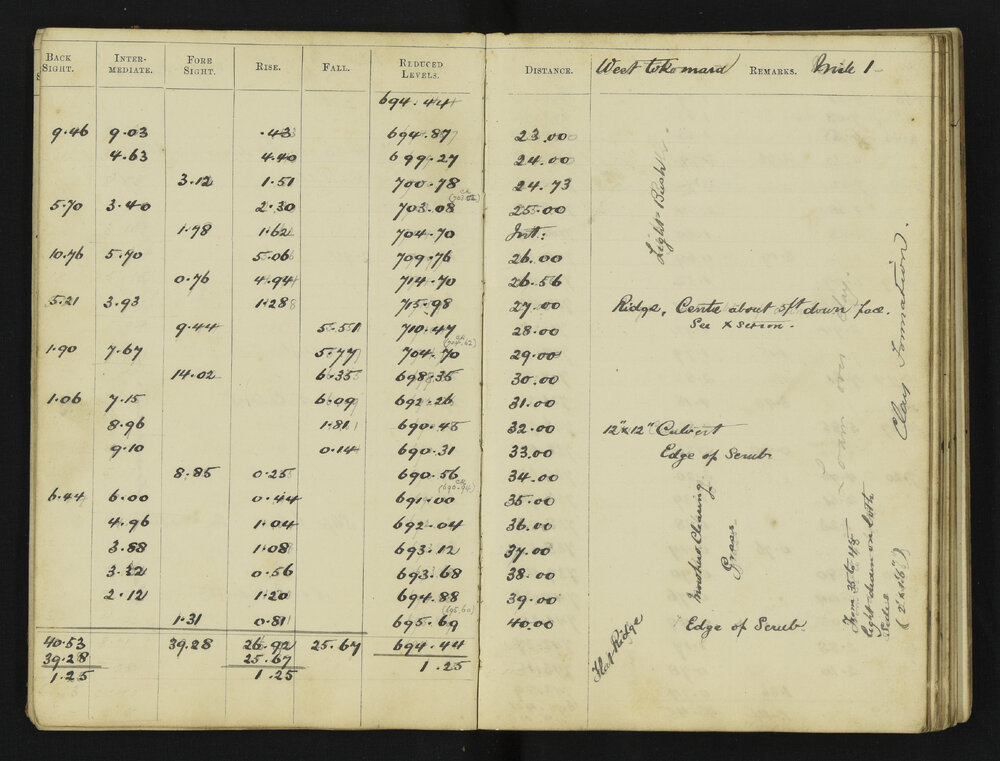 BACK SIGHT. INTER-MEDIATE. FORE SIGHT. RISE. FALL. REDUCED LEVELS. DISTANCE. West Tokomaru REMARKS. Mile 1
694.44
9.46 9.03 .43 694.87 23.00
4.63 4.40 699.27 24.00
3.12 1.51 700.78 24.73
5.70 3.40 2.30 703.08 25.00
1.78 1.62 704.70 Int:
10.76 5.70 5.06 709.76 26.00
0.76 4.94 714.70 26.56
5.21 3.93 1.28 715.98 27.00 Ridge, Centre about 5ft down face.
9.44 5.51 710.47 28.00 See X section.
1.90 7.67 5.77 704.70 29.00
14.02 6.35 698.35 30.00
1.06 7.15 6.09 692.26 31.00
8.96 1.81 690.45 32.00 12"x12" Culvert
9.10 0.14 690.31 33.00 Edge of Scrub
8.85 0.25 690.56 34.00
6.44 6.00 0.44 691.00 35.00
4.96 1.04 692.04 36.00
3.88 1.08 693.12 37.00
3.32 0.56 693.68 38.00
2.12 1.20 694.88 39.00
(695.60)
1.31 0.81 695.69 40.00 Edge of Scrub
40.53 39.28 26.92 25.67 694.44
39.28 25.67 1.25
1.25 1.25
Light Bush
Clearing
Grass
Flat Ridge
Clay Formation.
From 35 to 45
light drain on both
sides